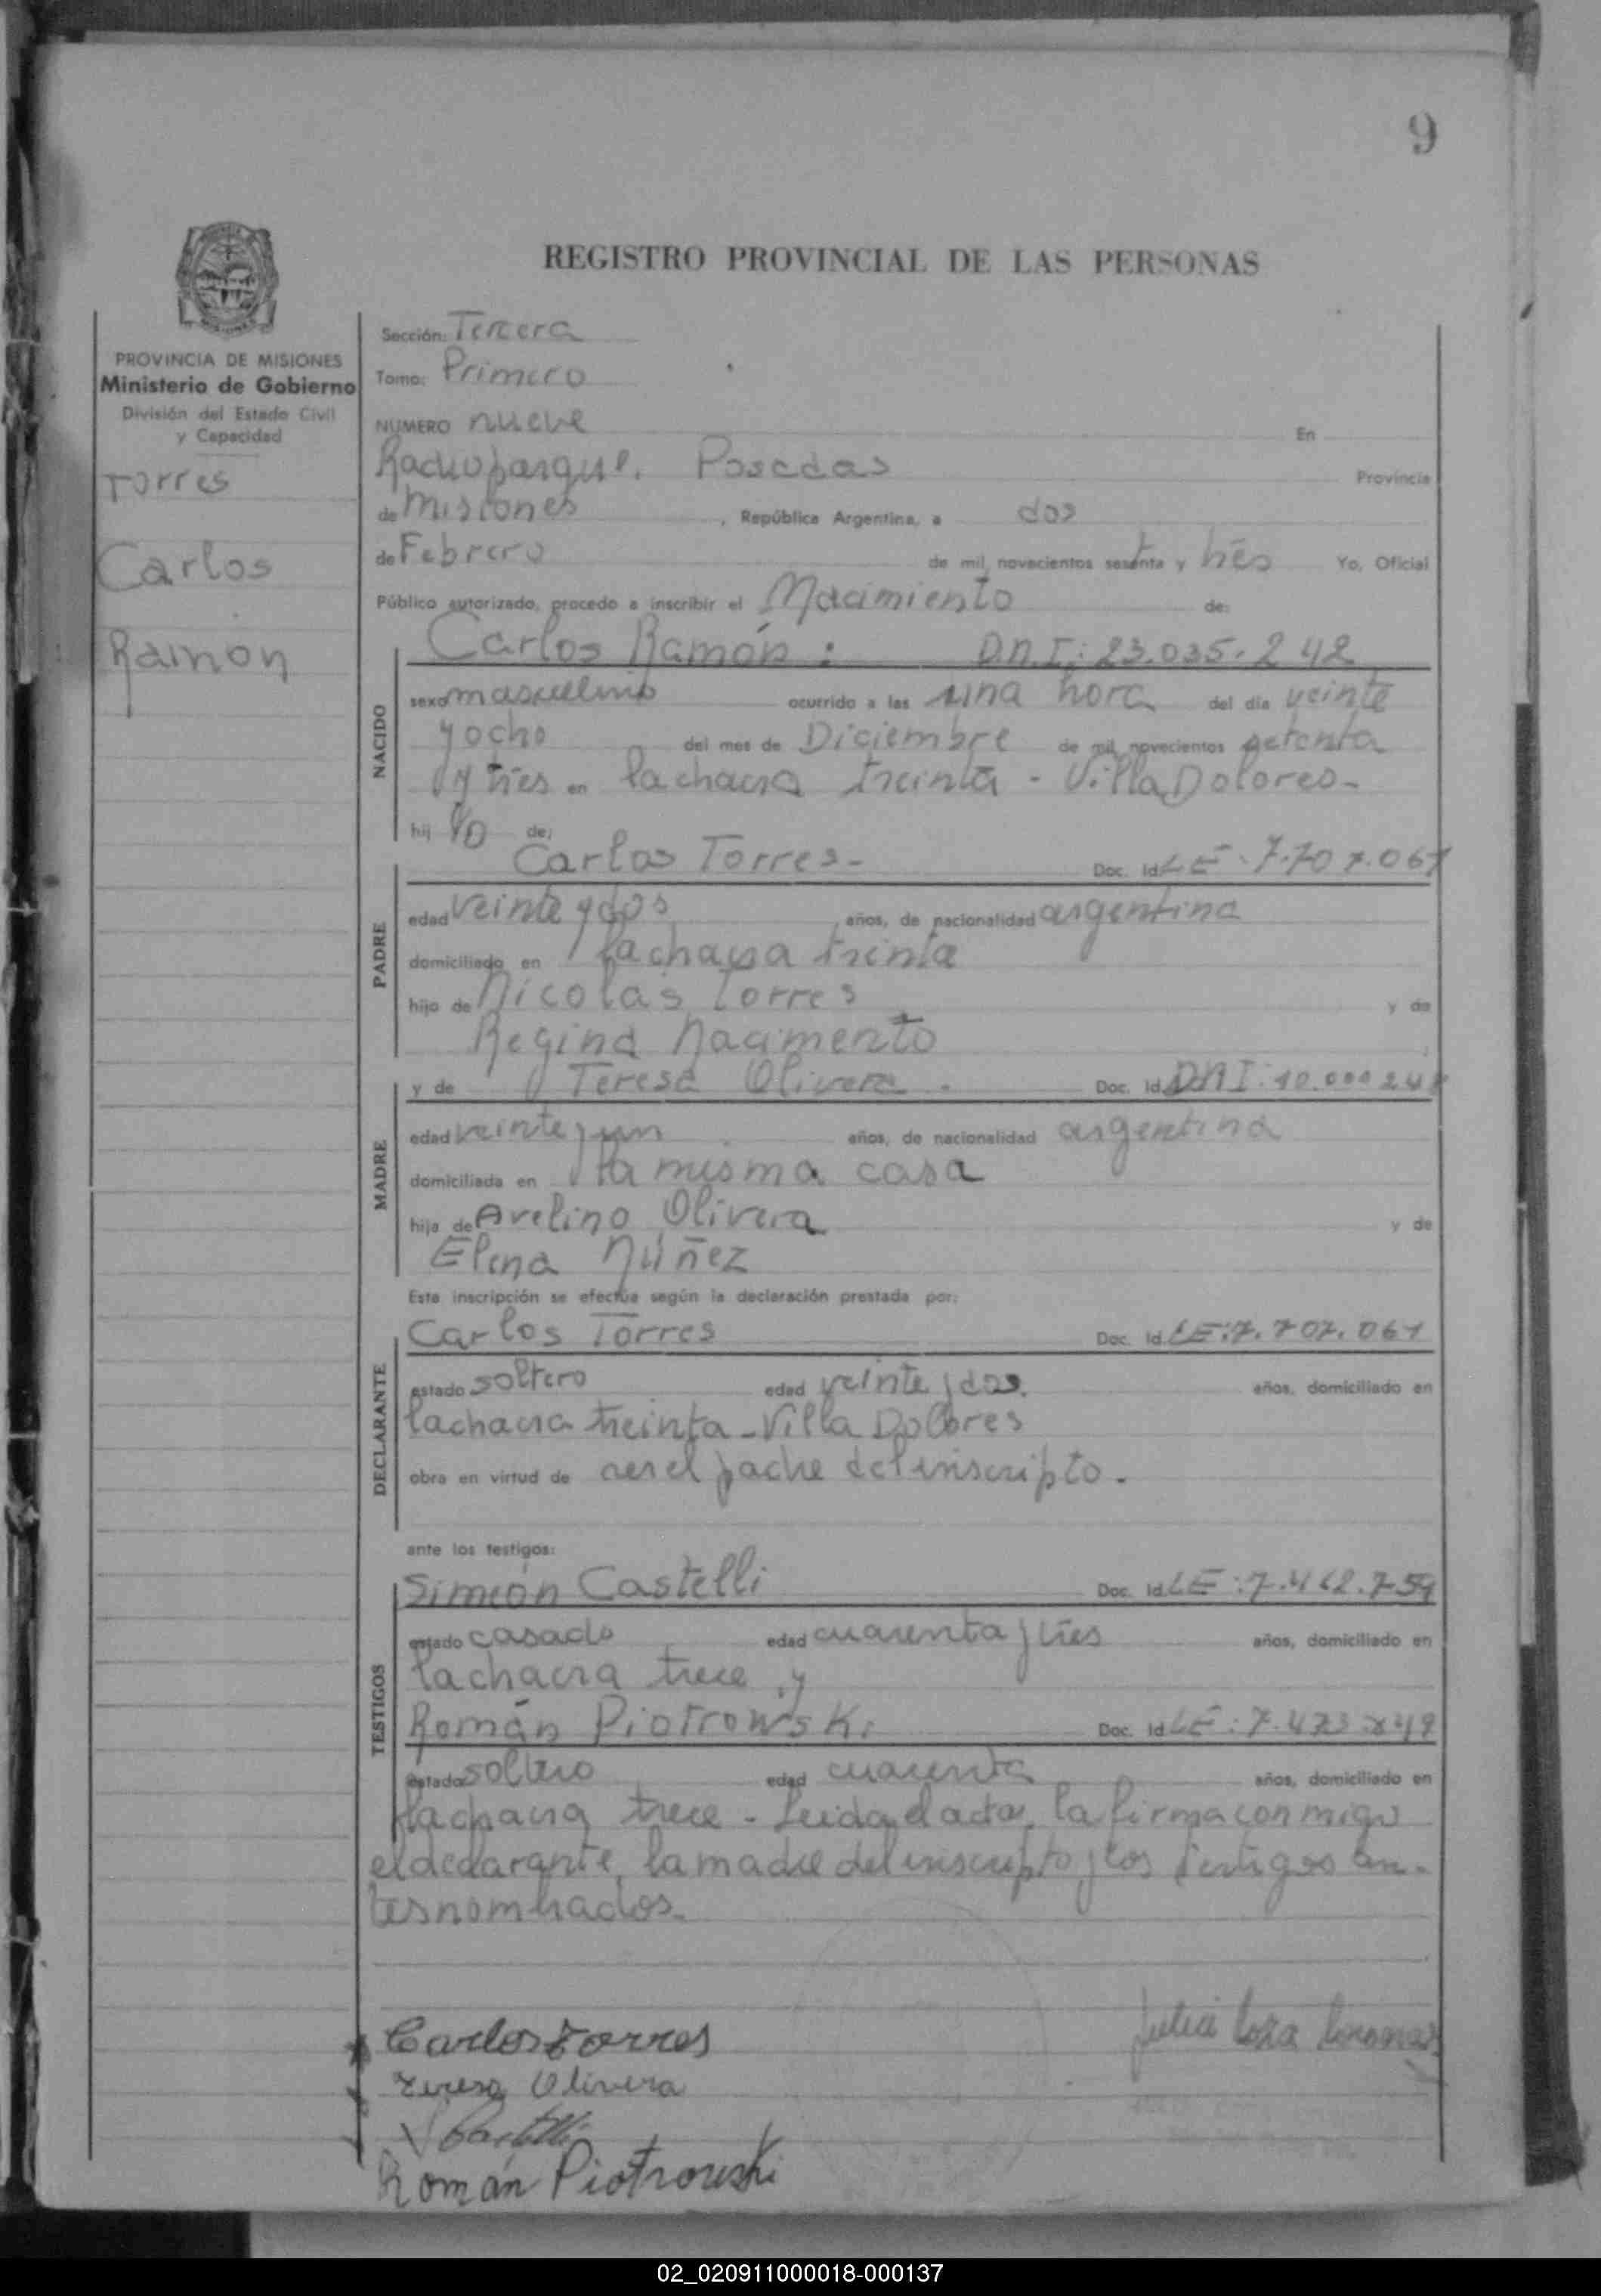 9
REGISTRO PROVINCIAL DE LAS PERSONAS
PROVINCIA DE MISIONES
Ministerio de Gobierno
División del Estado Civil
y Capacidad
Torres
Carlos
Ramon
Sección: Tercera
Tomo: Primero
NUMERO nueve En
Radioparque. Posadas Provincia
de Misiones, República Argentina, a dos
de Febrero de mil novecientos sesenta y tres Yo, Oficial
Público autorizado, procedo a inscribir el Nacimiento de:
Carlos Ramón: D.N.I: 23.035.242
NACIDO
sexo masculino ocurrido a las una hora del día veinte
y ocho del mes de Diciembre de mil novecientos setenta
y tres en la chacra treinta - Villa Dolores-
hij yo de:
PADRE
Carlos Torres- Doc. Id. LE: 7.707.061
edad veinte y dos años, de nacionalidad argentina
domiciliado en la chacra treinta
hijo de Nicolas Torres y de
Regina Nacimento
MADRE
y de Teresa Olivera. Doc. Id. DNI: 10.000.24
edad veinte y un años, de nacionalidad argentina
domiciliada en la misma casa
hija de Avelino Olivera y de
Elena Núñez
Esta inscripción se efectúa según la declaración prestada por:
DECLARANTE
Carlos Torres Doc. Id. LE: 7.707.061
estado soltero edad veinte y dos. años, domiciliado en
la chacra treinta - Villa Dolores
obra en virtud de ser el padre del inscripto.
ante los testigos:
TESTIGOS
Simeón Castelli Doc. Id. LE: 7.462.759
estado casado edad cuarenta y tres años, domiciliado en
la chacra trece y
Román Piotrowski Doc. Id. LE: 7.473.849
estado soltero edad cuarenta años, domiciliado en
la chacra trece - Leida el acta, la firma con migo
el declarante, la madre del inscripto y los testigos an-
tes nombrados.
Carlos Torres
Julia
Teresa Olivera
Castelli
Román Piotrowski
02_020911000018-000137